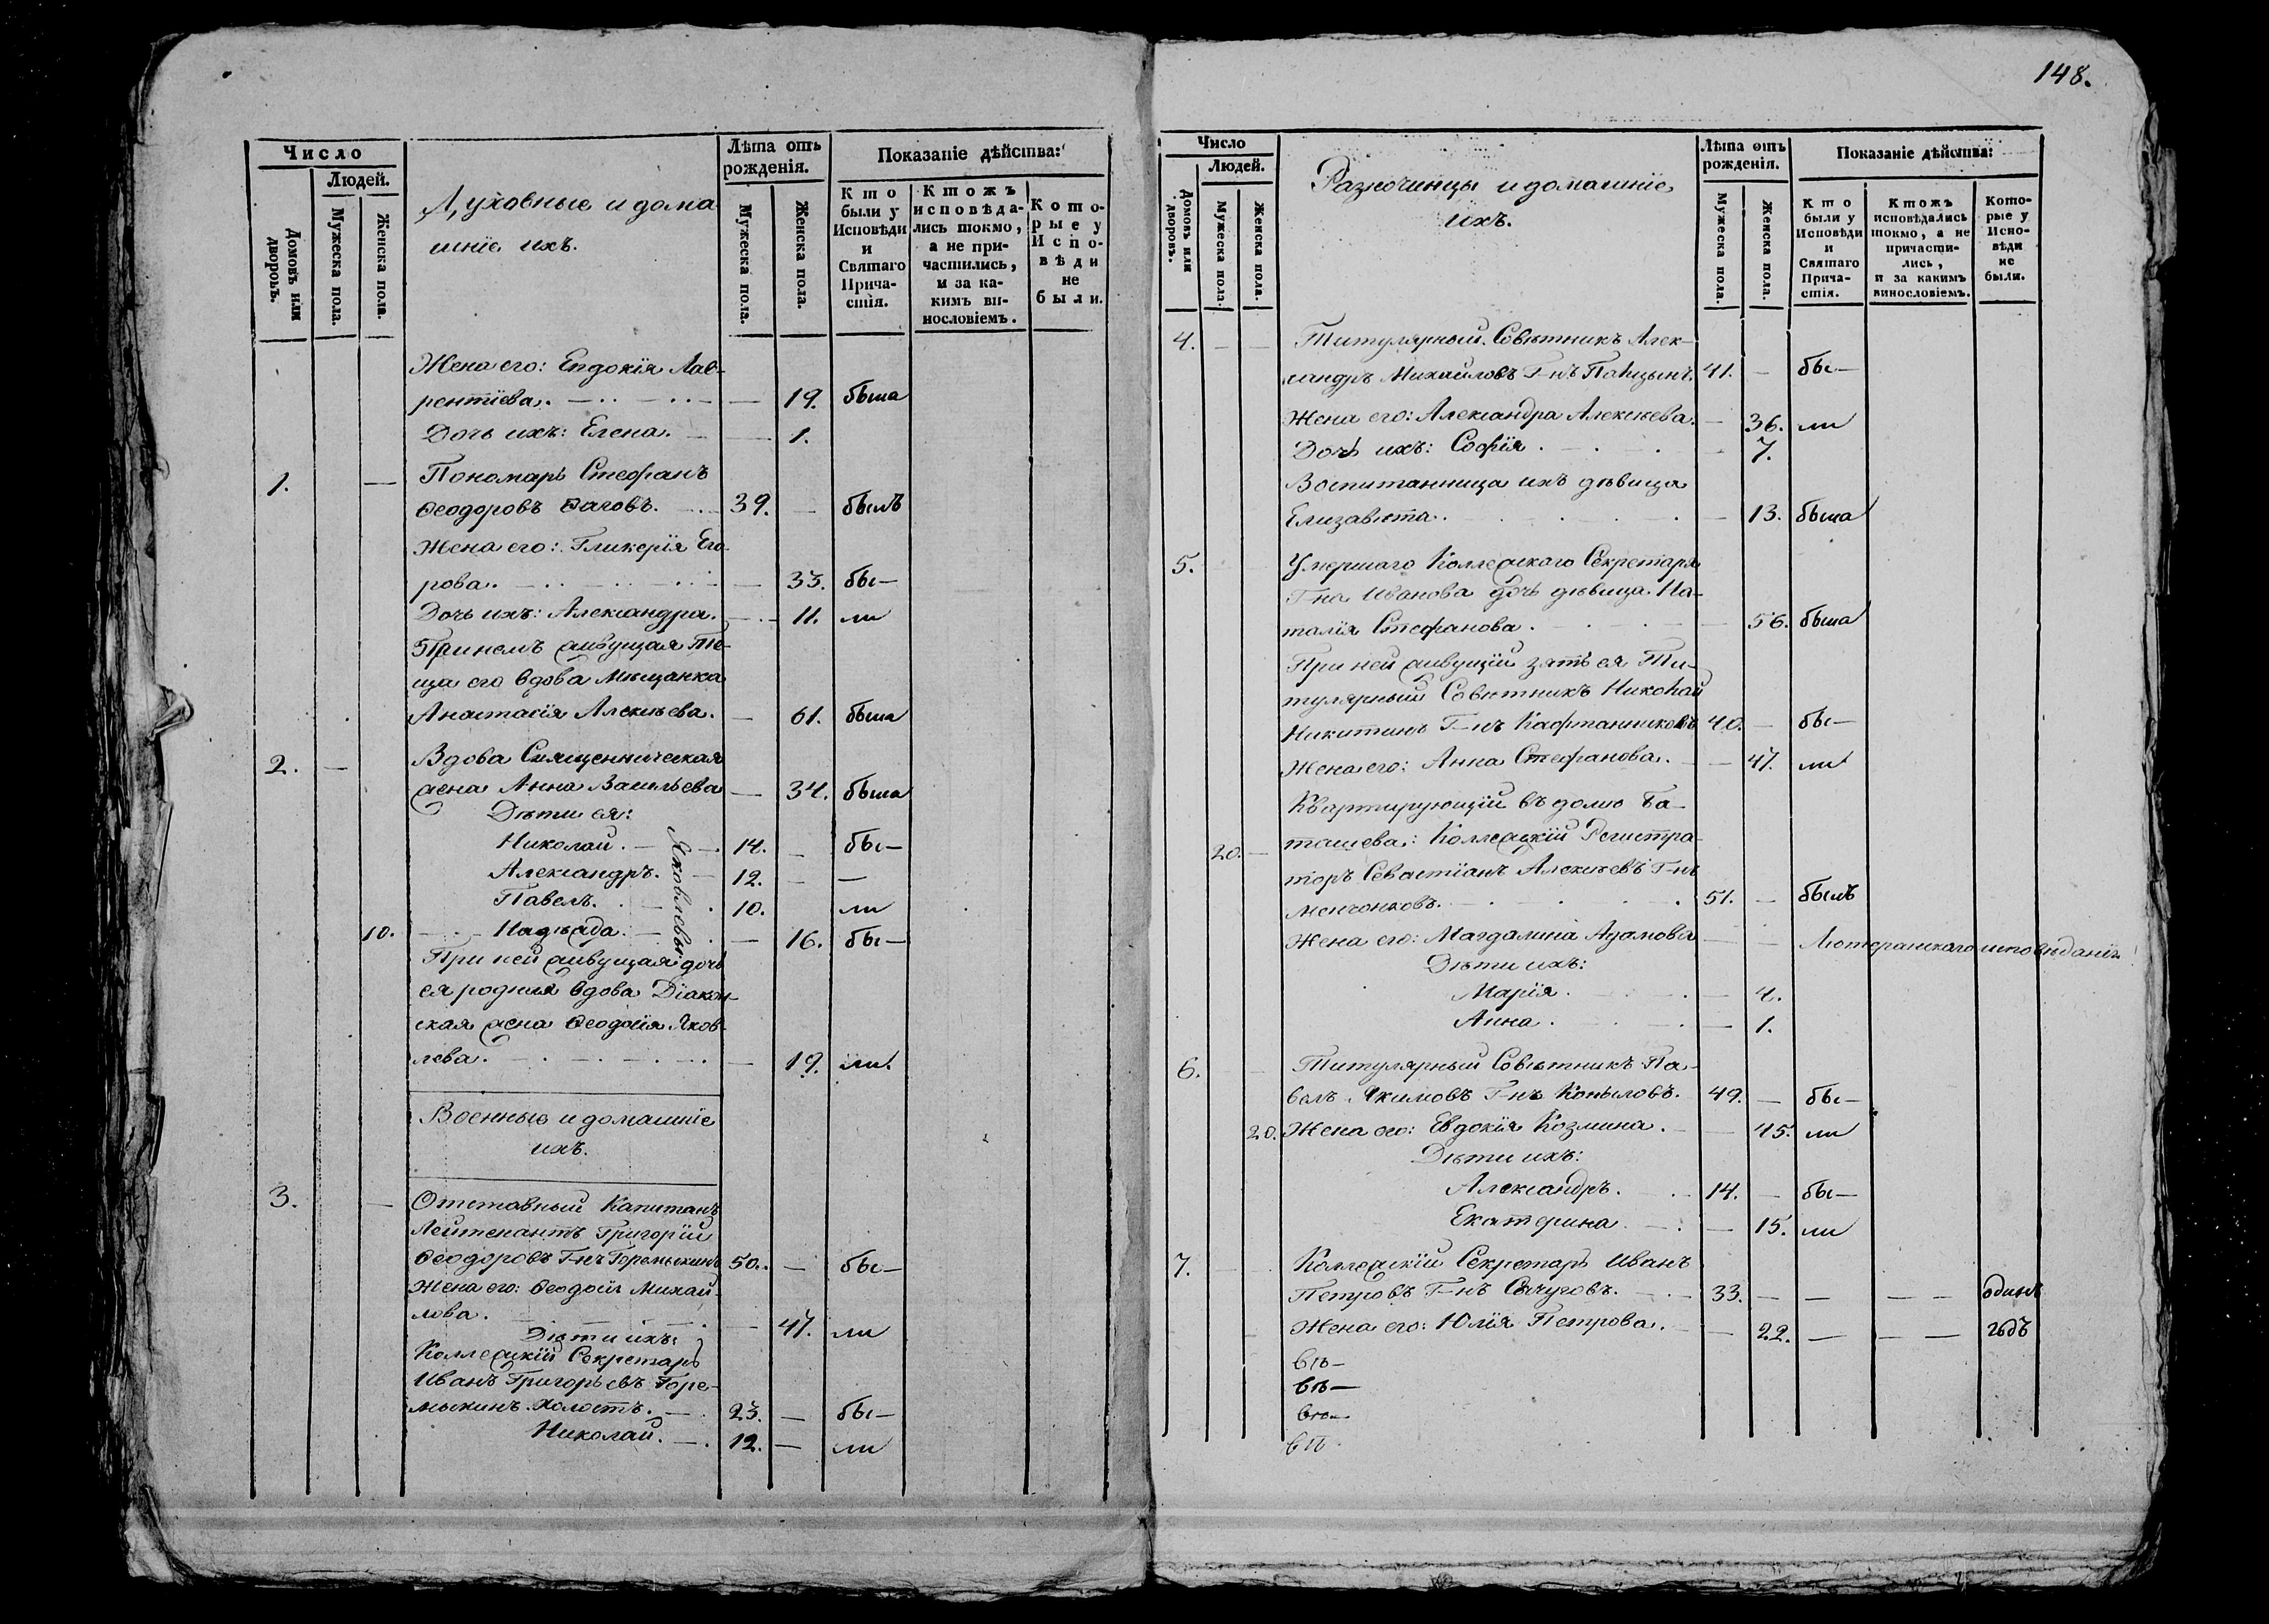 148.
Число
Людей.
Домовъ или дворовъ.
Мужеска пола.
Женска пола.
Духовные и дома
шніе ихъ.
Лѣта отъ
рожденія.
Мужеска пола.
Женска пола.
Показаніе дѣйства:
Кто
были у
Исповѣди
и
Святаго
Прича-
стія.
Ктожъ
исповѣда-
лись токмо,
а не при-
частились,
и за ка-
кимъ ви-
нословіемъ.
Кото-
рые у
Испо-
вѣди
не
были.
Жена его: Евдокія Лав-
рентіева. — 19. была
Дочь ихъ: Елена. — 1.
1. — Пономарь Стефанъ
Ѳеодоровъ Ѳаговъ. — 39. — былъ
Жена его: Гликерія Его-
рова. — 33. бы—
Дочь ихъ: Александра. — 11. ли
При немъ живущая те-
ща его вдова мѣщанка
Анастасія Алексѣева. — 61. была
2. — Вдова Священническая
жена Анна Васильева — 34. была
Дѣти ея:
Николай. — 14. — бы—
Александръ. — 12. — —
Павелъ. 10. ли
10. Надѣжда. — 16. бы—
Яковлевы
При ней живущая дочь
ея родная вдова Діакон-
ская жена Ѳеодосія Яков-
лева. — 19. ли.
Военные и домашніе
ихъ.
3. — Отставный Капитанъ
Лейтенантъ Григорій
Ѳеодоровъ Г-нъ Горемыкинъ 50. — бы—
Жена его: Ѳеодосія Михай-
лова. — 47. ли
Дѣти ихъ:
Коллежскій Секретарь
Иванъ Григорьевъ Горе-
мыкинъ холостъ. — 23. — бы—
Николай. — 12. — ли
Число
Людей.
Домовъ или дворовъ.
Мужеска пола.
Женска пола.
Разночинцы и домашніе
ихъ.
Лѣта отъ
рожденія.
Мужеска пола.
Женска пола.
Показаніе дѣйства:
Кто
были у
Исповѣди
и
Святаго
Прича-
стія.
Ктожъ
исповѣдались
токмо, а не
причасти-
лись,
и за какимъ
винословіемъ.
Кото-
рые у
Испо-
вѣди
не
были.
4. — — Титулярный Совѣтникъ Алек-
сандръ Михайловъ Г-нъ 41. — бы—
Жена его: Александра Алексѣева. — 36. ли
Дочь ихъ: Софія. — 7.
Воспитанница ихъ дѣвица
Елизавета. — 13. была
5. Умершаго Коллежскаго Секретаря
Г-на Иванова дочь дѣвица На-
талія Стефанова. — 56. была
При ней живущій зять ея Ти-
тулярный Совѣтникъ Николай
Никитинъ Г-нъ Кафтанниковъ 40. — бы—
Жена его: Анна Стефанова. — 47. ли
Квартирующій въ домѣ Ба-
20. — ташева: Коллежскій Регистра-
торъ Севастіанъ Алексѣевъ Г-нъ
Менчонковъ. 51. — былъ
Жена его: Магдалина Адамова — — Лютеранскаго исповѣданія
Дѣти ихъ:
Марія. — 4.
Анна. — 1.
6. Титулярный Совѣтникъ Па-
велъ Якимовъ Г-нъ Копыловъ. 49. — бы—
20. Жена его: Евдокія Козмина. — 45. ли
Дѣти ихъ:
Александръ. 14. — бы—
Екатерина. — 15. ли
7. Коллежскій Секретарь Иванъ
Петровъ Г-нъ 33. — — — — одинъ
Жена его: Юлія Петрова. — 22. — — — годъ
въ—
въ—
въ—
въ